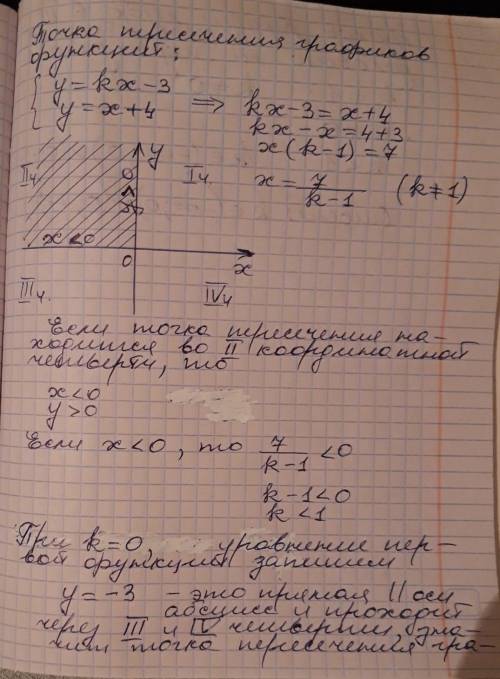 Точка пересечения графиков
функций:
{ y = kx - 3
y = x + 4 ⇒ kx - 3 = x + 4
kx - x = 4 + 3
x(k-1) = 7
x = 7/(k-1) (k≠1)
y
IIч
Iч.
y>0
x<0
0
x
IIIч.
IVч
Если точка пересечения на-
ходится во II координатной
четверти, то
x<0
y>0
Если x<0, то 7/(k-1) <0
k-1<0
k<1
При k=0, уравнение пер-
вой функции запишем
y = -3 - это прямая || оси
абсцисс и проходит
через III и IV четверти, зна-
чит точка пересечения гра-